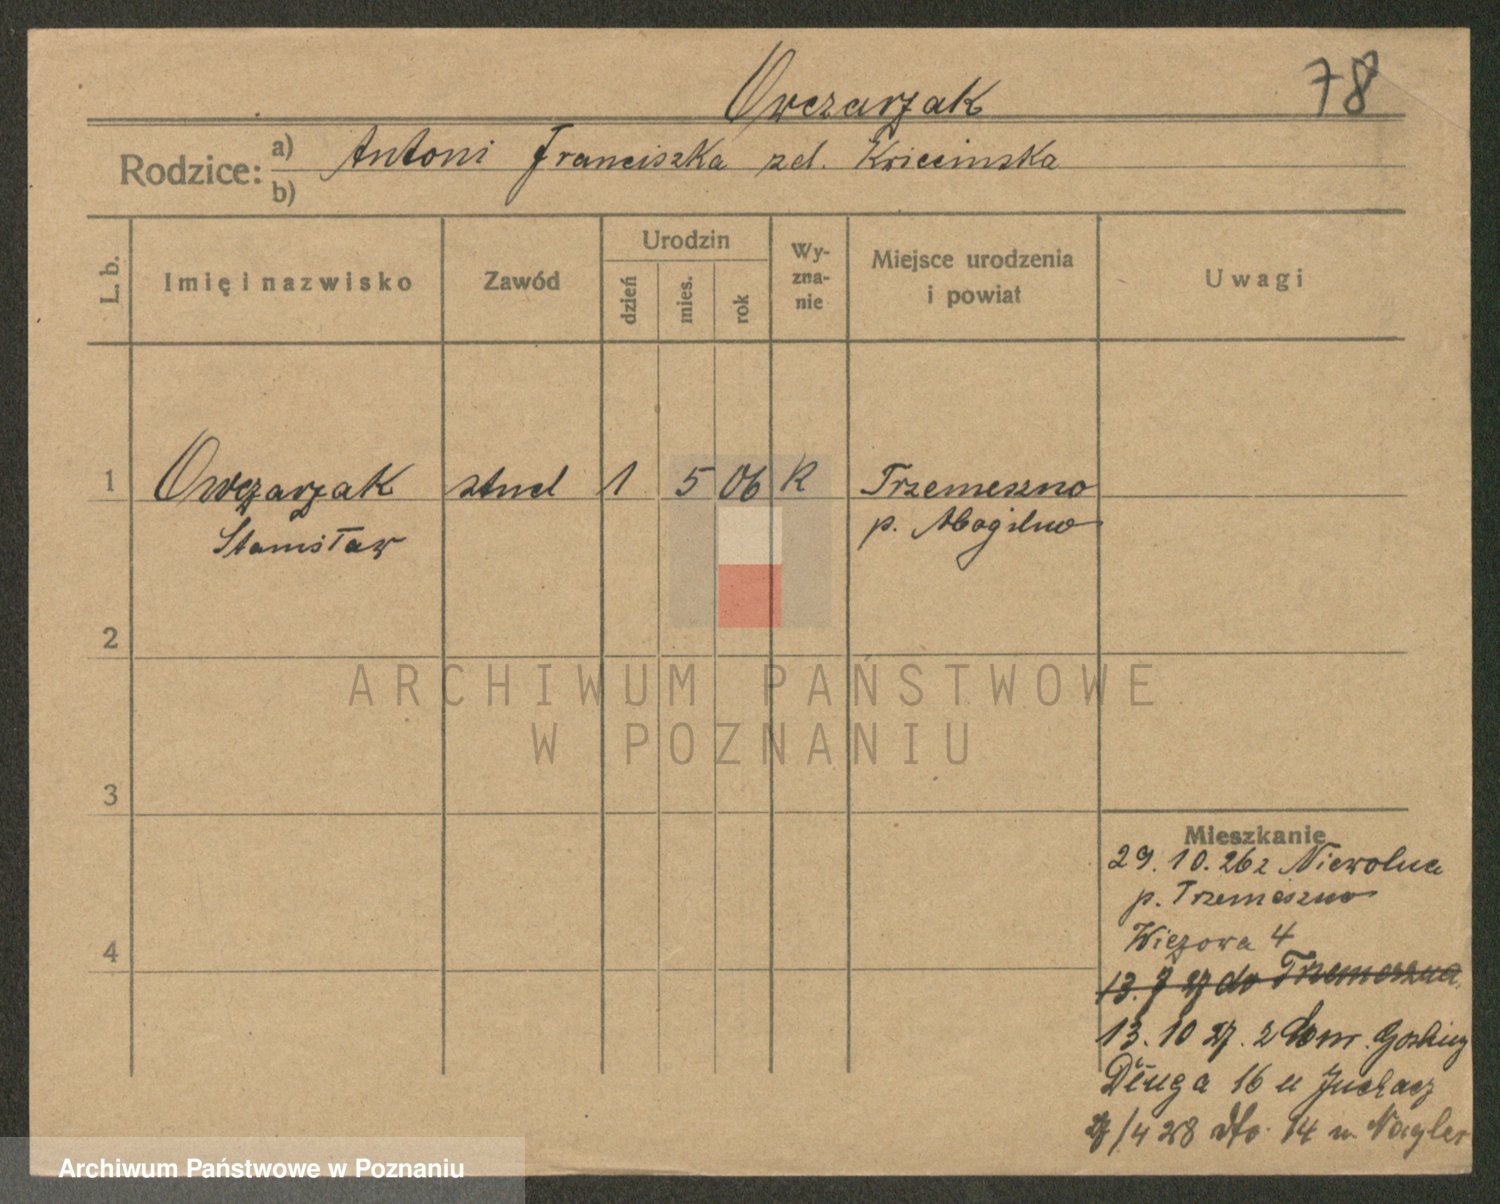 Owczarzak
78
Rodzice: a) Antoni Franciszka zd.
b)
L. b.
Imię i nazwisko
Zawód
Urodzin
dzień
mies.
rok
Wy-
zna-
nie
Miejsce urodzenia
i powiat
Uwagi
1 Owczarzak stud 1 5 06 K Trzemeszno
Stanisław p. Mogilno
2
3
4
Mieszkanie
29.10.26 z Niewolna
p. Trzemeszno
Więzowa 4
13. 7 27 do Trzemeszna
13.10 27. z
Długa 16 u Juchacz
27/4 28 dto. 14 u. Nagler
ARCHIWUM PAŃSTWOWE
W POZNANIU
Archiwum Państwowe w Poznaniu